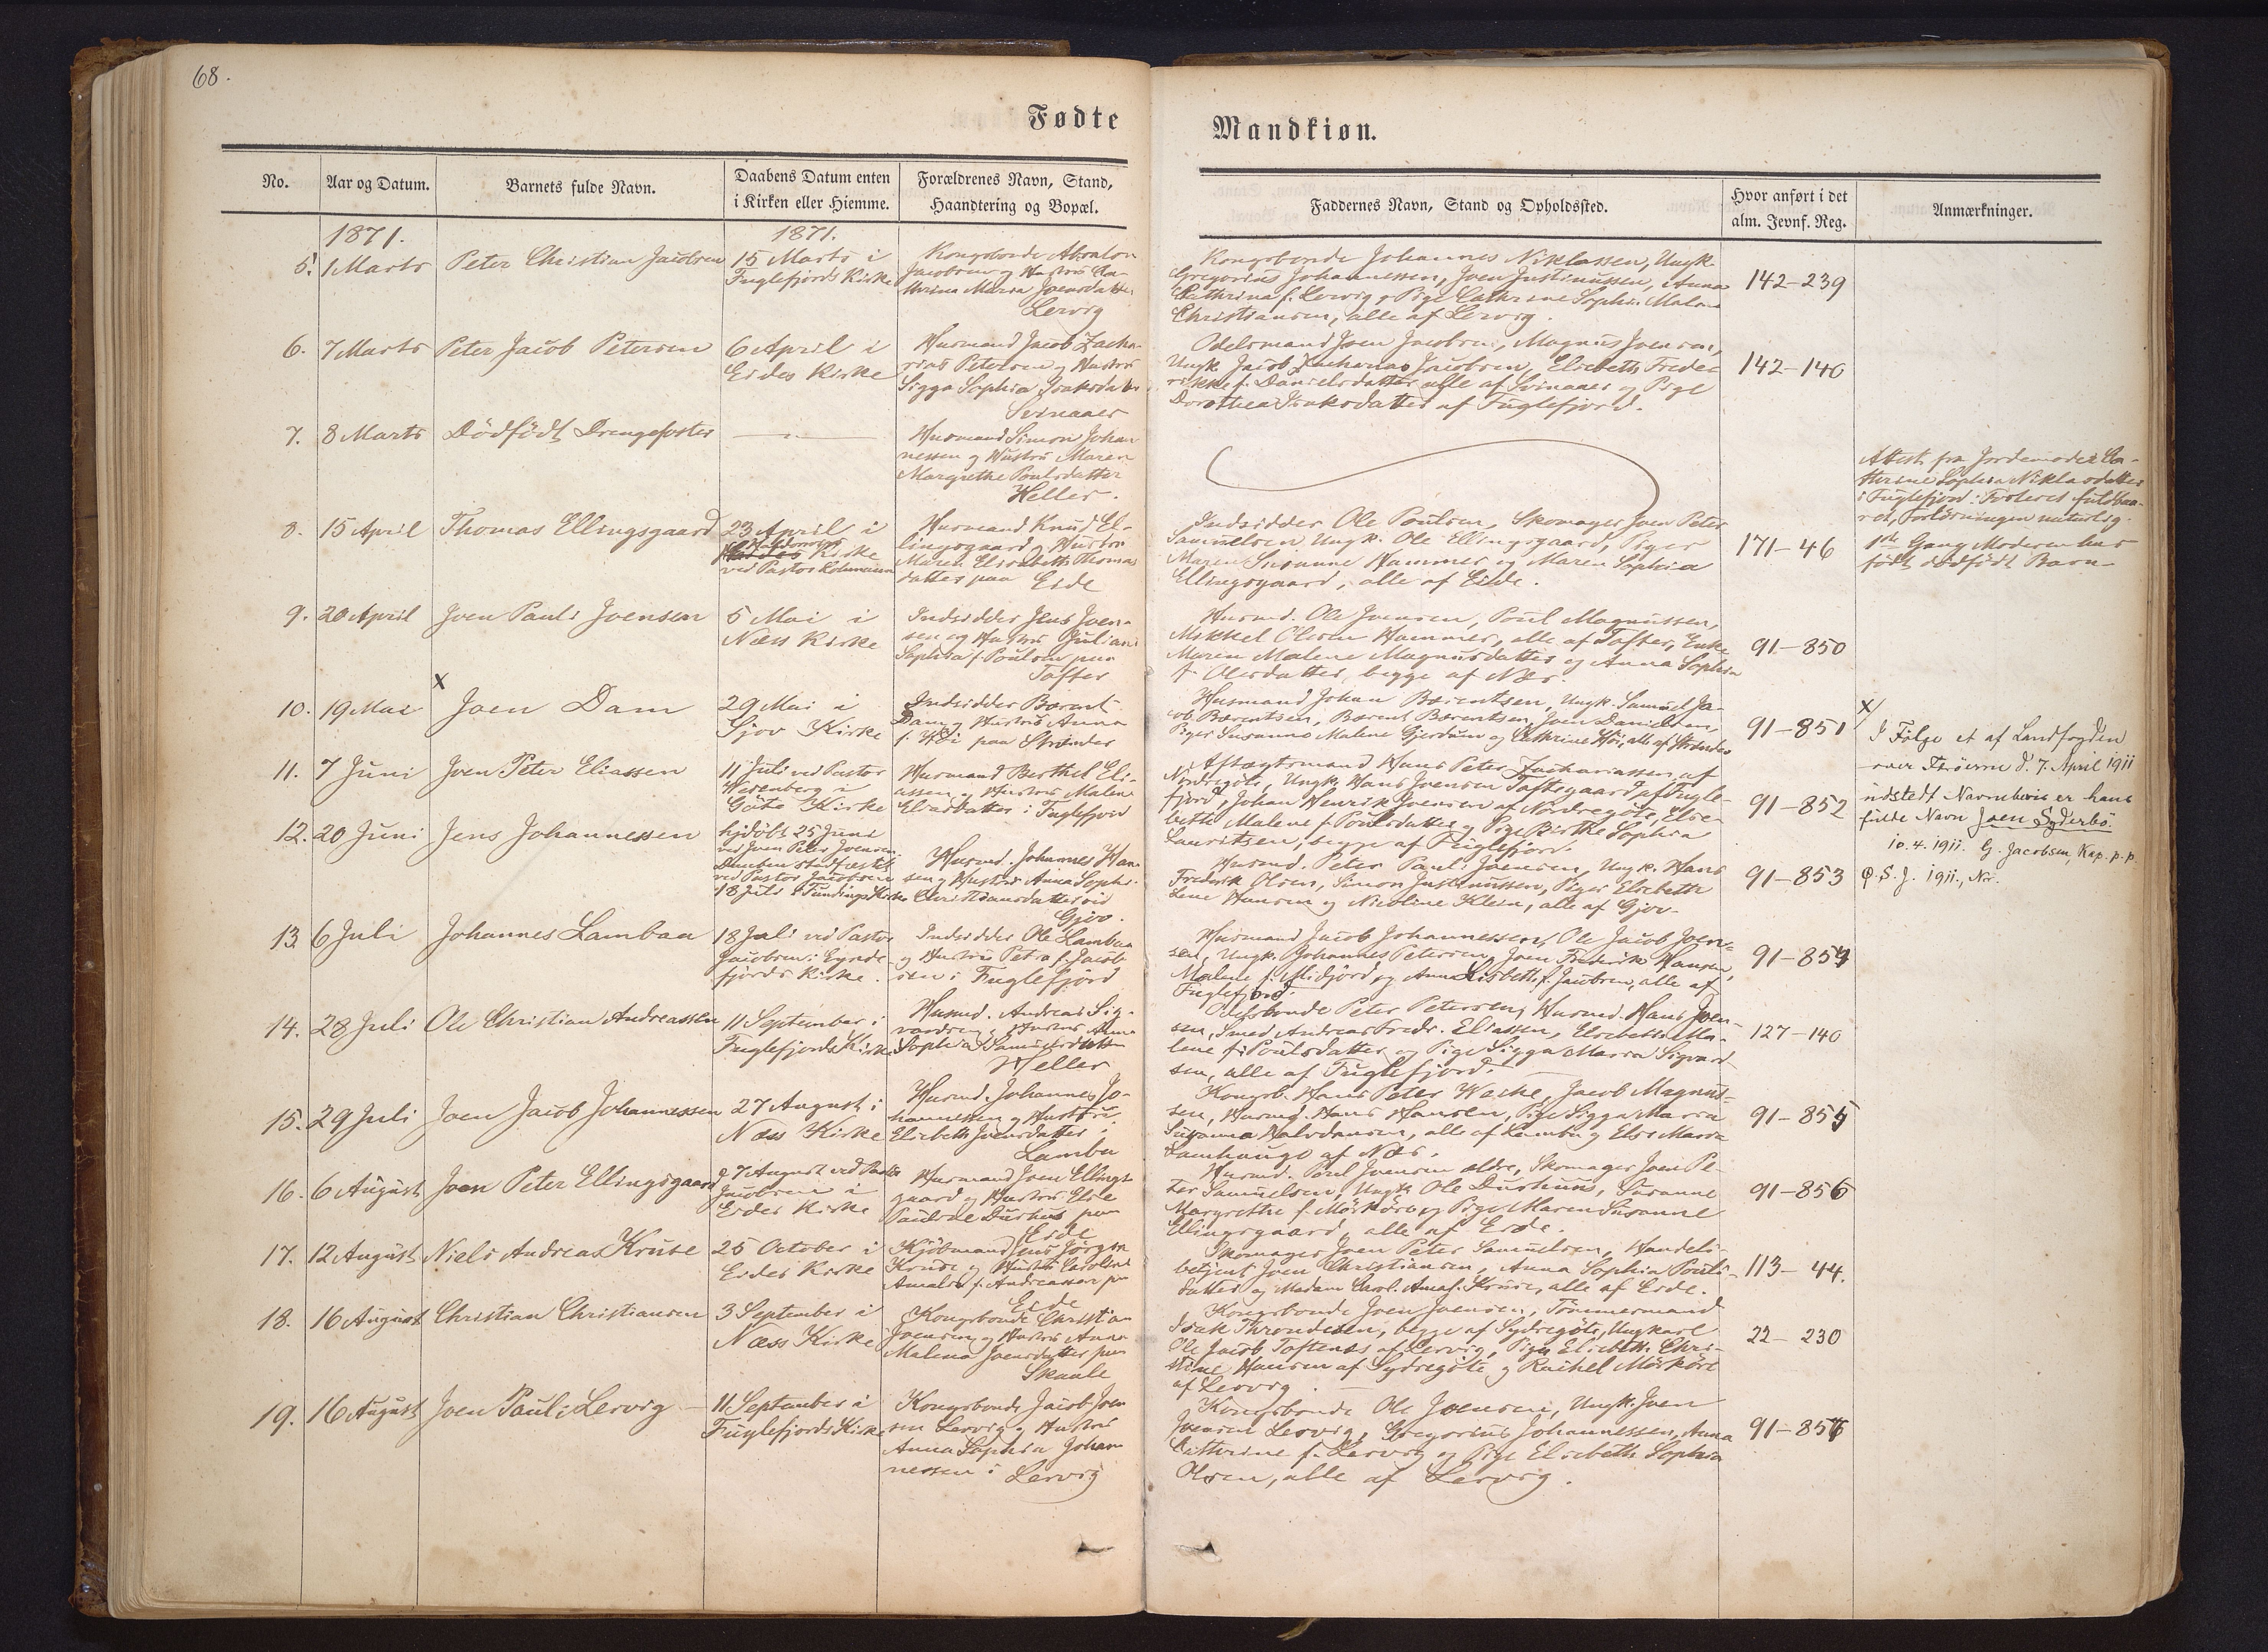 68.
Fødte
Mandkiøn.
No.
Aar og Datum.
Barnets fulde Navn.
Daabens Datum enten
i Kirken eller Hiemme.
Forældrenes Navn, Stand,
Haandtering og Bopæl.
Faddernes Navn, Stand og Opholdssted.
Hvor anført i det
alm. Jevnf. Reg.
Anmærkninger.
1871.
1871.
5. 1 Marts
Peter Christian Jacobsen
15 Marts i
Fuglefjords Kirke
Kongsbonde Absalon
Jacobsen og Hustru Ca-
thrina Maria Joensdatter
Lervig
Kongsbonde Johannes Niklassen, Ungk.
Gregorius Johannessen, Joen Justinussen, Anna
Cathrina f. Lervig og Pige Cathrine Sophie Malene
Christiansen, alle af Lervig.
142-239
6. 7 Marts
Peter Jacob Petersen
6 April i
Eides Kirke
Husmand Jacob Zacha-
rias Petersen og Hustru
Sigga Sophia Isaksdatter
Svinaaer
Odelsmand Joen Jacobsen, Magnus Joensen,
Ungk. Jacob Zacharias Jacobsen, Elsebeth Frede-
rikke f. Danielsdatter alle af Svinaaer og Pige
Dorothea Isaksdatter af Fuglefjord.
142-140
7. 8 Marts
Dödfödt Drengefoster
Husmand Simon Johan
nessen og Hustru Maren
Margrethe Poulsdatter
Heller.
Attest fra Jordemoder Ca-
thrine Sophia Niklasdatter
i Fuglefjord: Fosteret fuldbaa-
ret, Forlösningen naturlig.
1ste Gang Moderen har
födt dödfödt Barn
8. 15 April
Thomas Ellingsgaard
23 April i
Kirke
ved Pastor
Husmand Knud El-
lingsgaard og Hustru
Maren Elisabeth Thomas
datter paa Eide
Indsidder Ole Poulsen, Skomager Joen Peter
Samuelsen Ungk. Ole Ellingsgaard, Piger
Maren Susanne Hammer og Maren Sophia
Ellingsgaard, alle af Eide.
171-46
9. 20 April
Joen Pauli Joensen
5 Mai i
Næs Kirke
Indsidder Jens Joen-
sen og Hustru Juliane
Sophia f. Poulsen paa
Tofter
Husmd. Ole Joensen, Poul Magnussen,
Mikkel Olsen Hammer, alle af Tofter, Enke
Maren Malene Magnusdatter og Anna Sophia
f. Olesdatter, begge af Næs.
91-850
x
10. 19 Mai
Joen Dam
29 Mai i
Gjov Kirke
Indsidder Bærent
Dam og Hustru Anna
f. Höi paa Strænder
Husmand Johan Bærentsen, Ungk. Samuel Ja-
cob Bærentsen, Bærent Bærentsen, Joen Danielsen,
Piger Susanne Malene Gjerdum og Cathrine Höi, alle af Strænder
91-851
x/
I Følge et af Landfogden
over Færøerne d. 7. April 1911
udstedt Navnebevis er hans
fulde Navn Joen Syderbö.
10.4.1911. G. Jacobsen, Kap. p. p.
11. 7 Juni
Joen Peter Eliassen
11 Juli ved Pastor
i
Göte Kirke
Husmand Berthel Eli-
assen og Hustru Malene
Eliasdatter i Fuglefjord
Aftægtsmand Hans Peter Zachariassen af
Nordregöte, Ungk. Hans Joensen Toftegaard af Fugle-
fjord, Johan Henrik Joensen af Nordregöte, Else-
beth Malene f. Poulsdatter og Pige Birthe Sophia
Lauritsen, begge af Fuglefjord.
91-852
12. 20 Juni
Jens Johannessen
hjdöbt 25 Juni
ved Joen Peter Joensen
Daaben stadfæstet
ved Pastor Jacobsen
18 Juli i Fundings Kirke
Husmd. Johannes Han-
sen og Hustru Anna Sophi
Christiansdatter ved
Gjov.
Husmd. Peter Pauli Joensen, Ungk. Hans
Frederik Olsen, Simon Justinussen, Piger Elsebeth
Lene Hansen og Nicoline Klein, alle af Gjov.
91-853
13. 6 Juli
Johannes Lambaa
18 Juli ved Pastor
Jacobsen i
fjords Kirke.
Indsidder Ole Lambaa
og Hustru Petra f. Jacob
sen i Fuglefjord
Husmand Jacob Johannessen, Ole Jacob Joen-
sen, Ungk. Johannes Petersen, Joen Frederik Hansen,
Malene f. Midjord og Anna Lisbeth f. Jacobsen, alle af
Fuglefjord.
91-854
14. 28 Juli
Ole Christian Andreassen
11 September i
Fuglefjords Kirke
Husmd. Andreas Sig-
vardsen og Hustru Anna
Sophia Samuelsdatter
Heller
Peter Petersen, Husmd. Hans Joen-
sen, Smed Andreas Fredr. Eliassen, Elsebeth Ma-
lene f. Poulsdatter og Pige Sigga Maria Sigvard-
sen, alle af Fuglefjord.
127-140
15. 29 Juli
Joen Jacob Johannessen
27 August i
Næs Kirke
Husmd. Johannes Jo-
hannessen og Hustru
Elsebeth Joensdatter i
Lamba
Kongsb. Hans Peter Weihe, Jacob Magnus-
sen, Husmd. Hans Hansen, Pige Sigga Maria
Susanna Halvdansen, alle af Lamba og Else Maria
Lamhauge af Næs.
91-855
16. 6 August
Joen Peter Ellingsgaard
27 August ved Pastor
Jacobsen i
Eides Kirke
Husmand Joen Ellings-
gaard og Hustru Else
Pauline Durhus paa
Eide
Husmd. Poul Joensen ældre, Skomager Joen Pe-
ter Samuelsen, Ungk. Ole Durhuus, Susanne
Margrethe f. Mörköre og Pige Maren Susanne
Ellingsgaard, alle af Eide.
91-856
17. 12 August
Niels Andreas Kruse
25 October i
Eides Kirke
Kjöbmand Jens Jörgen
Kruse og Hustru Caroline
Amalie f. Andreassen paa
Eide
Skomager Joen Peter Samuelsen, Handels-
betjent Joen Christiansen, Anna Sophia Pouls-
datter og Madam Carol. Amal. Kruse, alle af Eide.
113-44.
18. 16 August
Christian Christiansen
3 September i
Næss Kirke
Kongsbonde Christian
Joensen og Hustru Anna
Malena Joensdatter paa
Skaale
Kongsbonde Joen Joensen, Tömmermand
Isak Throndesen, begge af Sydregöte, Ungkarl
Ole Jacob Toftenes af Lervig, Pige Elsebeth Chri-
stine Hansen af Sydregöte og Rachel Mörköre
af Lervig.
22-230
19. 16 August
Joen Pauli Lervig
11 September i
Fuglefjords Kirke
Kongsbonde Jacob Joen
sen Lervig og Hustru
Anna Sophia Johan
nessen i Lervig
Kongsbonde Ole Joensen, Ungk. Joen
Joensen Lervig, Gregorius Johannessen, Anna
Cathrine f. Lervig og Pige Elsebeth Sophia
Olsen, alle af Lervig.